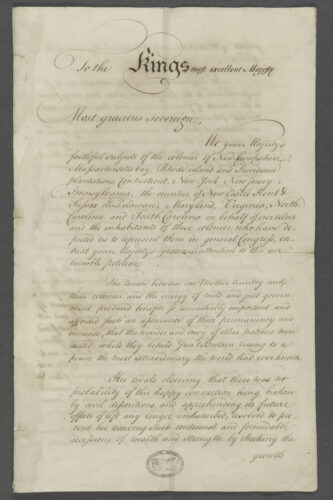 To the Kings most excellent Majesty
Most gracious sovereign,
We your Majesty's
faithful subjects of the colonies of New hampshire
Massachusetts bay, Rhode island and Providence
plantations, Connecticut, New York, New Jersey,
Pennsylvania, the counties of New Castle Kent &
Sussex on Delaware, Maryland, Virginia, North
Carolina and South Carolina in behalf of ourselves
and the inhabitants of these colonies, who have de
puted us to represent them in general Congress, en
treat your Majesty's gracious attention to this our
humble petition.
The union between our Mother Country and
these colonies and the energy of mild and just govern
ment produced benefits so remarkably important and
afforded such an assurance of their permanency and
increase, that the wonder and envy of other nations were
excited, while they beheld Great Britain rising to a
power the most extraordinary the world had ever known.
Her rivals observing, that there was no
probability of this happy connexion being broken
by civil dissentions, and apprehending its future
effects if left any longer undisturbed, resolved to pre
vent her receiving such continual and formidable
accessions of wealth and strength, by checking the
growth